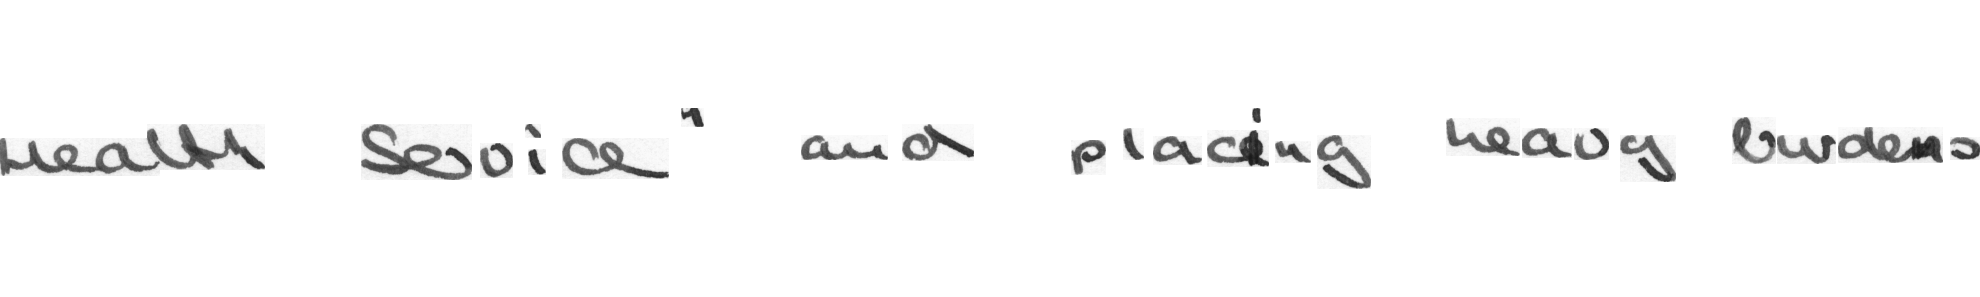 Health Service" and placing heavy burdens